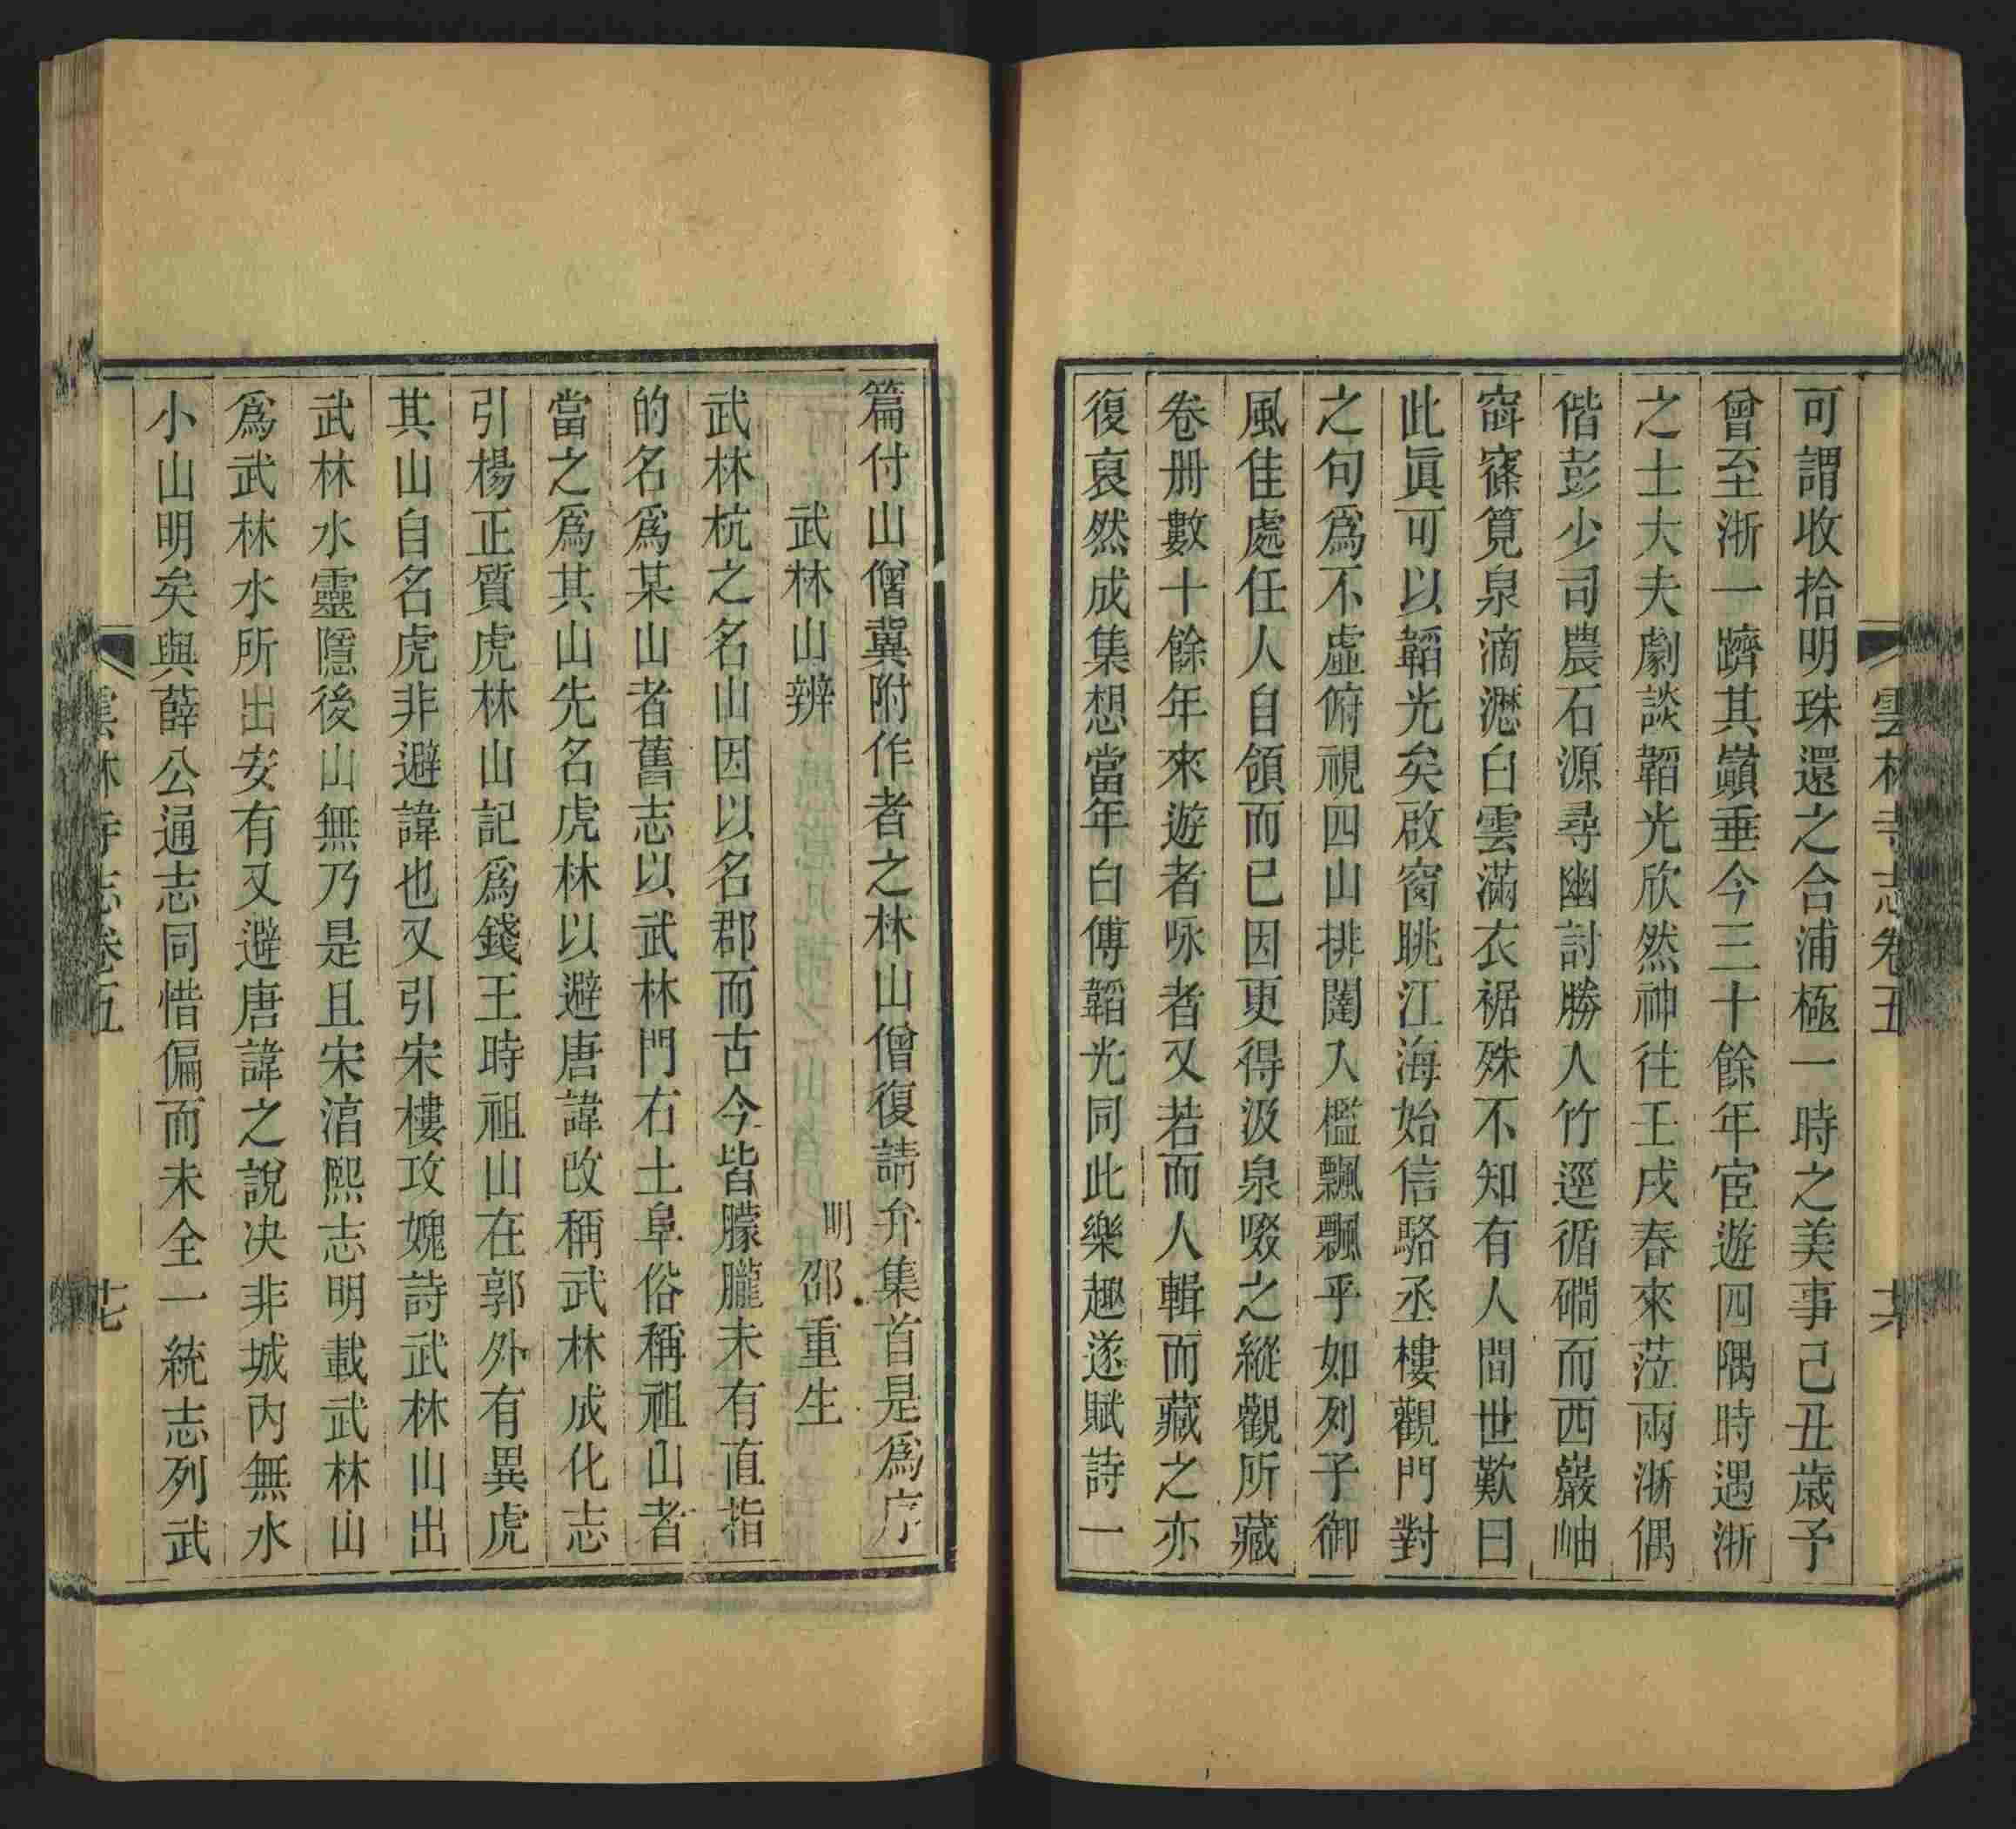 可謂收拾明珠還之合浦極一時之美事己丑歲予
曾至浙一躋其巔垂今三十餘年宦遊四隅時遇浙
之士大夫劇談韜光欣然神往壬戌春來蒞兩浙偶
偕彭少司農石源尋幽討勝人竹逕循磵而西巖岫
窅窱筧泉滴瀝白雲滿衣裾殊不知有人間世歎曰
此眞可以韜光矣啟窗眺江海始信駱丞樓觀門對
之句爲不虛俯視四山排闥入檻飄飄乎如列子御
風佳處任人自領而已因更得汲泉啜之縱觀所藏
卷册數十餘年來遊者咏者又若而人輯而藏之亦
復裒然成集想當年白傅韜光同此樂趣遂賦詩一
雲林寺志卷五
篇付山僧冀附作者之林山僧復請弁集首是爲序
武林山辨
明 邵重生
武林杭之名山因以名郡而古今皆朦朧未有直指
的名爲某山者舊志以武林門右土阜俗稱祖山者
當之爲其山先名虎林以避唐諱改稱武林成化志
引楊正質虎林山記爲錢王時祖山在郭外有異虎
其山自名虎非避諱也又引宋樓攻媿詩武林山出
武林水靈隱後山無乃是且宋淯熙志明載武林山
爲武林水所出安有又避唐諱之說决非城內無水
小山明矣與薛公通志同惜偏而未全一統志列武
雲林寺志卷五